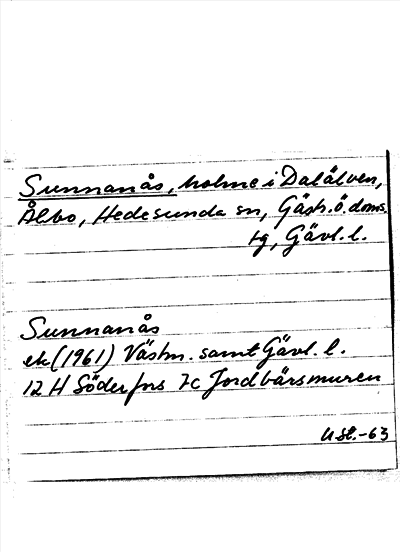 Sunnanås, holme i Dalälven,
Ålbo, Hedesunda sn, Gästr. ö. doms.
tg, Gävl. l.
Sunnanås
ek (1961) Västm. samt Gävl. l.
12 H Söderfors 7c Jordbärsmuren
-63